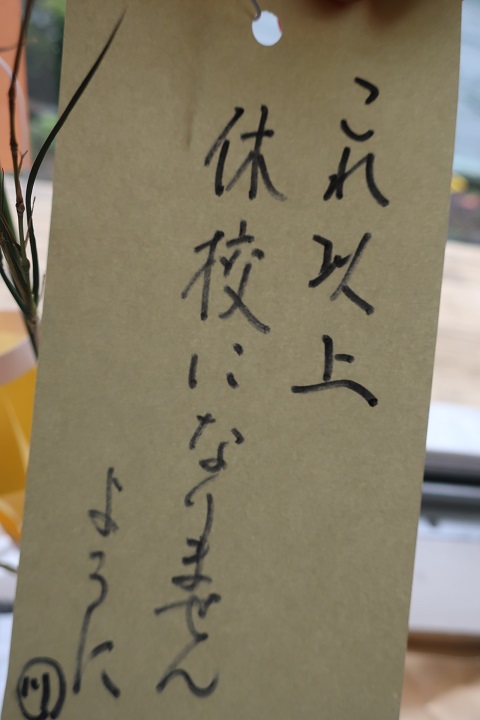 これ以上
休校になりません
ように
㋷